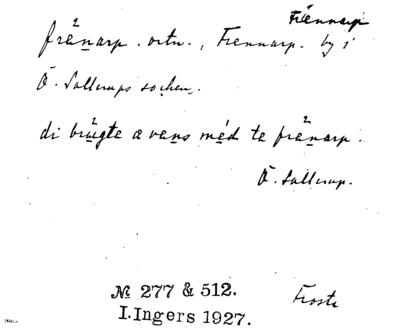 Frännarp
fränarp. ortn., Frennarp. by i
Ö. Sallerups socken.
di brúgte a vans méd te fränarp.
Ö. Sallerup.
№ 277 & 512. Frosta
I. Ingers 1927.